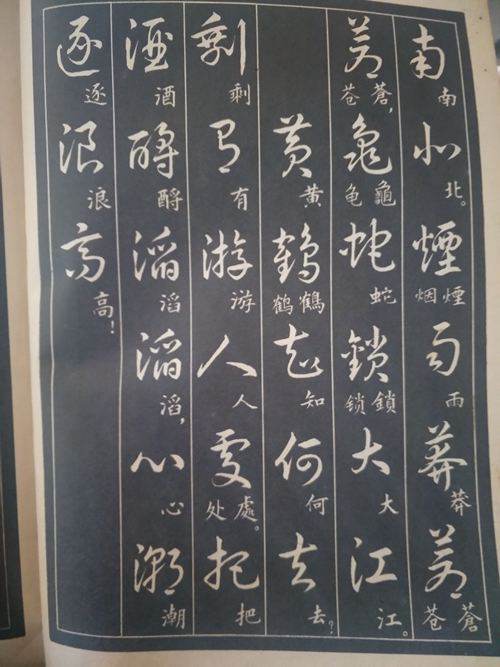 南 南 北 北。 煙 烟煙 雨 雨 莽 莽 蒼 苍蒼
蒼 苍蒼, 龜 龟龜 蛇 蛇 鎖 锁鎖 大 大 江 江。
黄 黄 鶴 鹤鶴 知 知 何 何 去 去?
剩 剩 有 有 游 游 人 人 處 处處。 把 把
酒 酒 酹 酹 滔 滔 滔 滔, 心 心 潮 潮
逐 逐 浪 浪 高 高!